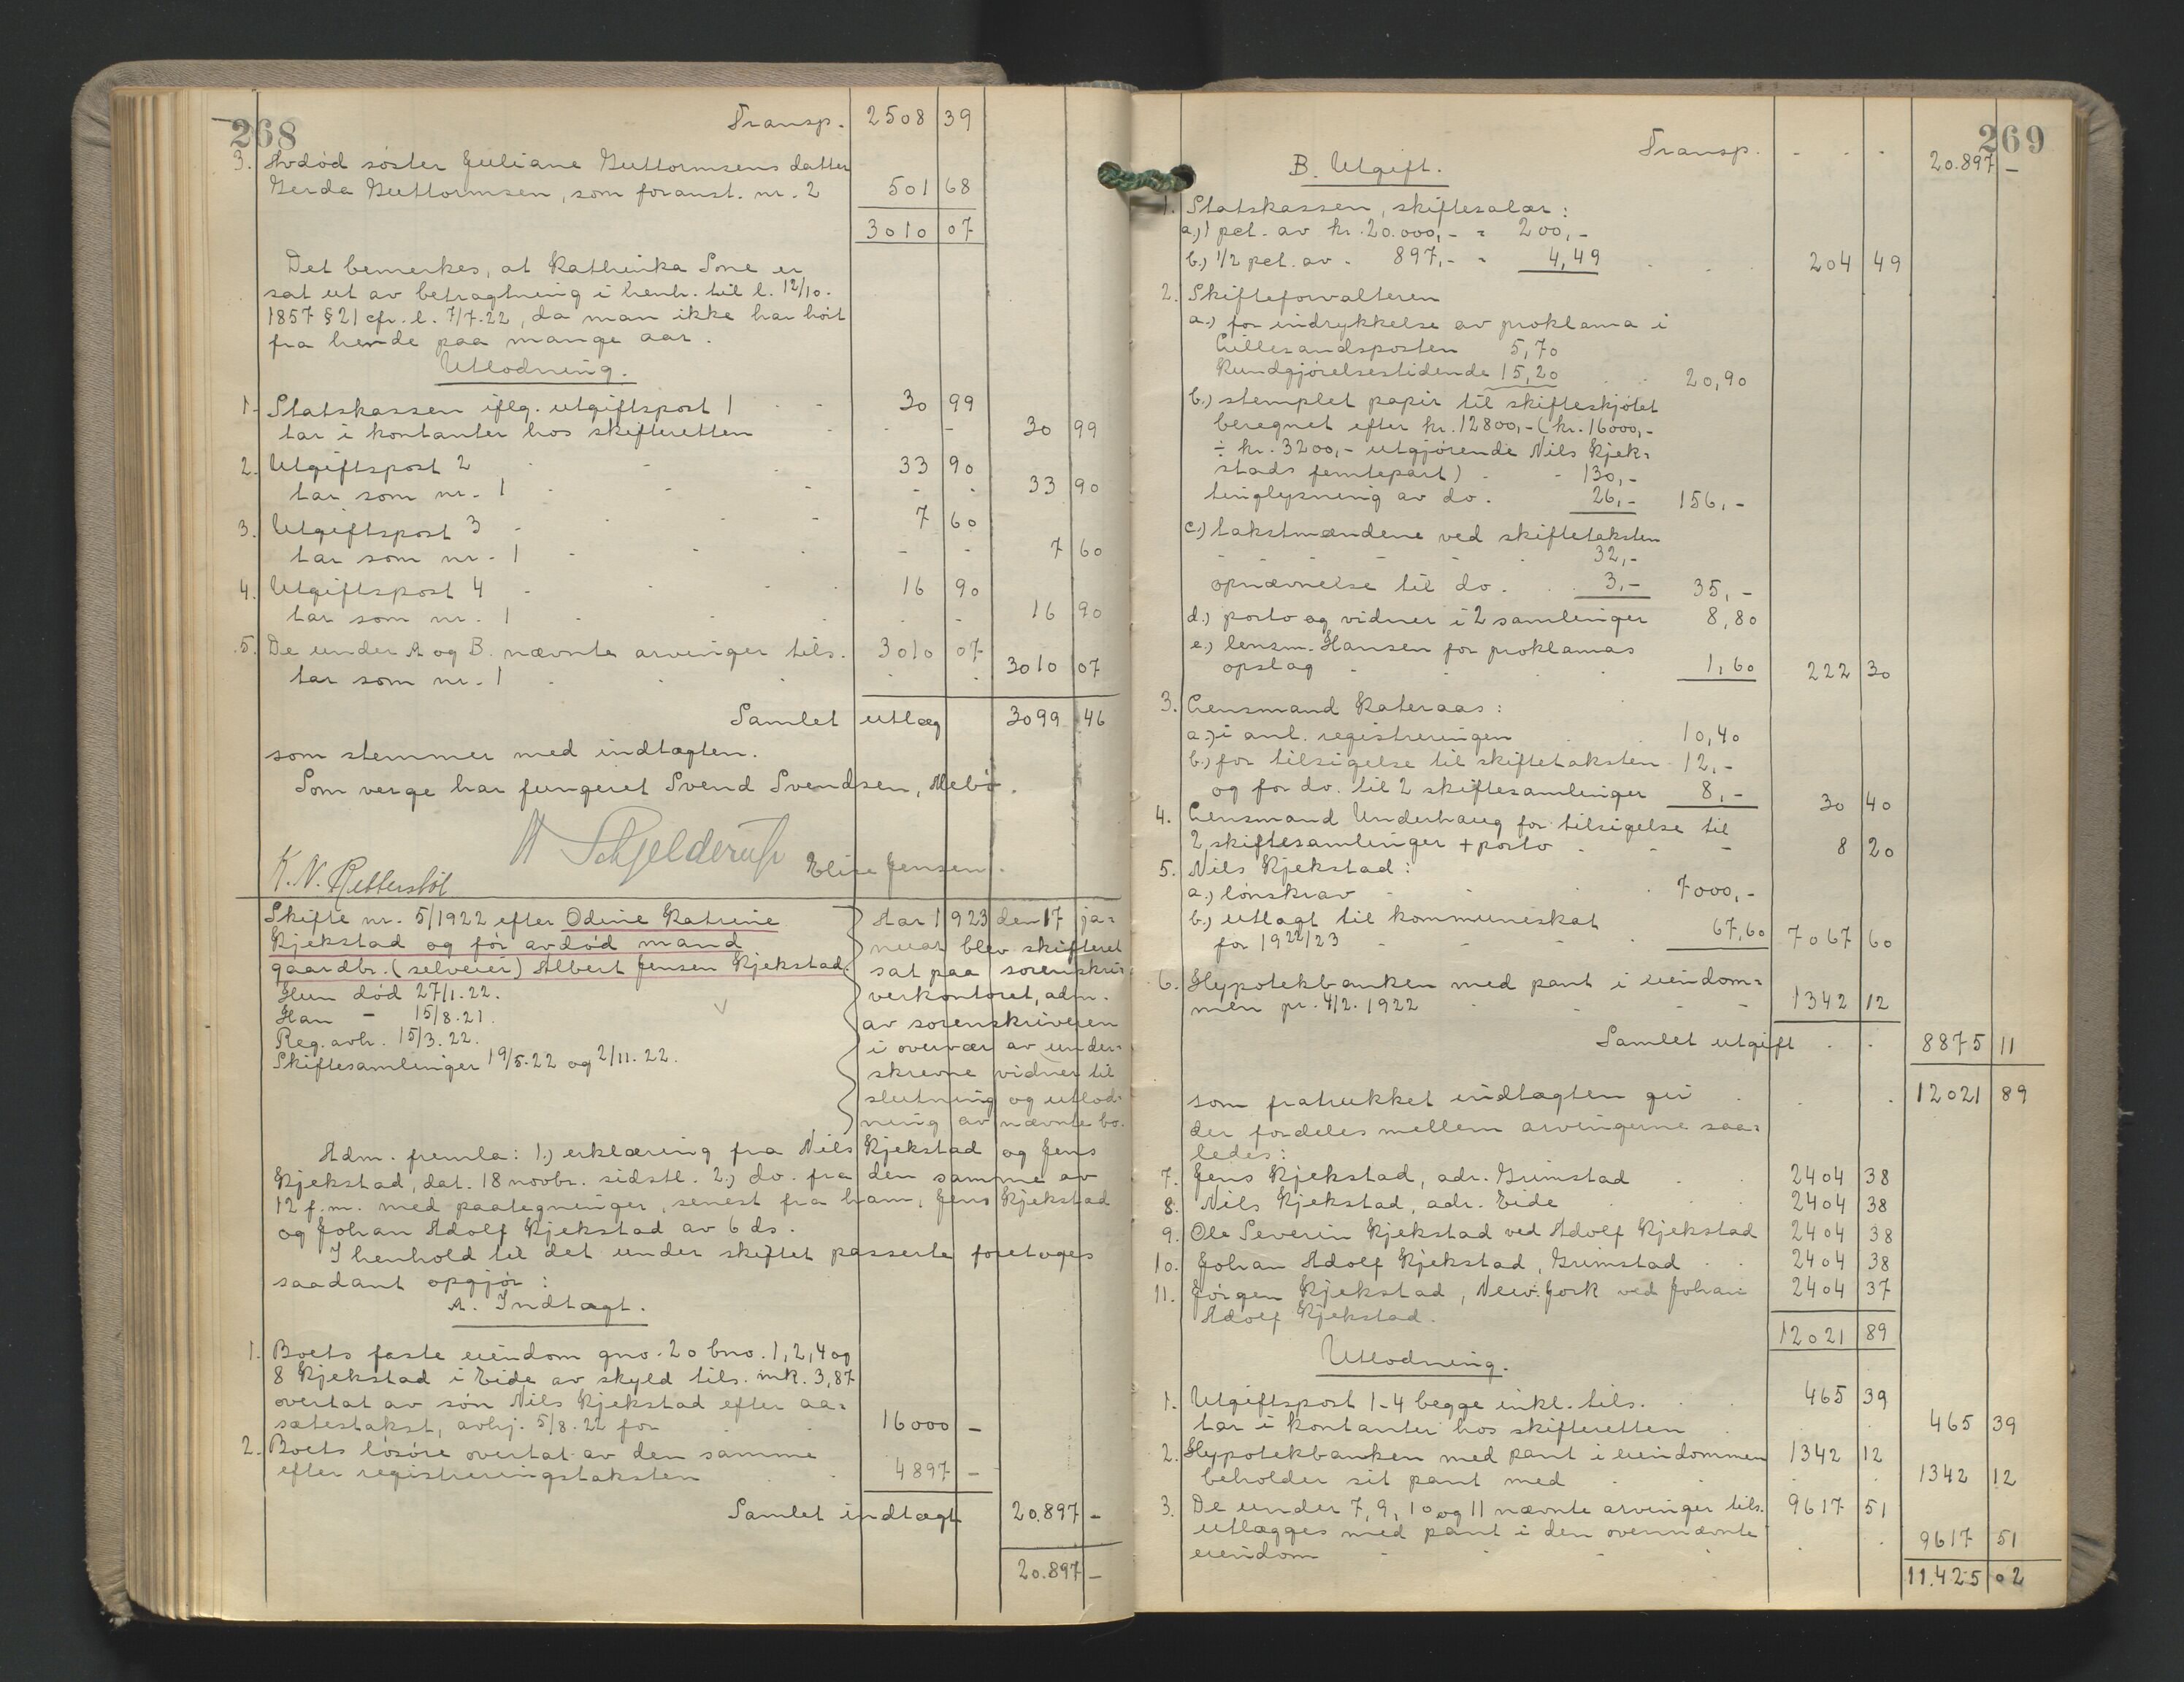 268
Transp. 2508 39
3. Avdöd söster Juliane Guttormsens datter
Gerda Guttormsen, som foranst. nr. 2 501 68
3010 07
Det bemerkes, at Kathrinka Sone er
sat ut av betragtning i henh. til l. 12/10.
1857 § 21 cfr. l. 7/7.22, da man ikke har hört
fra hende paa mange aar.
Utlodning.
1. Statskassen iflg. utgiftspost 1 - - 30 99
tar i kontanter hos skifteretten - - - 30 99
2. Utgiftspost 2 - - - 33 90
tar som nr. 1 - - - - - 33 90
3. Utgiftspost 3 - - - - 7 60
tar som nr. 1 - - - - - 7 60
4. Utgiftspost 4 - - - 16 90
tar som nr. 1 - - - - - 16 90
5. De under A og B. nævnte arvinger tils. 3010 07
tar som nr. 1 - - - - - 3010 07
Samlet utlæg 3099 46
som stemmer med indtægten.
Som verge har fungeret Svend Svendsen, Mebö.
A Schjelderup
K. N. Rettersböl Elise Jensen.
Skifte nr. 5/1922 efter Odine Katrine
Kjekstad og för avdöd mand
gaardbr. (selveier) Albert Jensen Kjekstad.
Hun död 27/1.22.
Han - 15/8.21.
Reg. avh. 15/3.22.
Skiftesamlinger 19/5.22 og 2/11.22.
Aar 1923 den 17 ja-
nuar blev skifteret
sat paa sorenskri-
verkontoret, adm.
av sorenskriveren
i overvær av under-
skrevne vidner til
slutning og utlod-
ning av nævnte bo.
Adm. fremla: 1.) erklæring fra Nils Kjekstad og Jens
Kjekstad, dat. 18 novbr. sidstl. 2.) do. fra den samme av
12 f.m. med paategninger, senest fra ham, Jens Kjekstad
og Johan Adolf Kjekstad av 6 ds.
I henhold til det under skiftet passerte foretoges
saadant opgjör:
A. Indtægt.
1. Boets faste eiendom gno. 20 bno. 1, 2, 4 og
8 Kjekstad i Eide av skyld tils. mk. 3,87
overtat av sön Nils Kjekstad efter aa-
sætestakst, avhj. 5/8.22 for 16000 -
2. Boets lösöre overtat av den samme
efter registreringstaksten 4897 -
Samlet indtægt 20.897 -
20.897 -
269
Transp. - - - 20.897 -
B. Utgift.
1. Statskassen, skiftesalær:
a.) 1 pct. av kr. 20.000,- = 200,-
b.) 1/2 pct. av - 897,- - 4,49 - - 204 49
2. Skifteforvalteren
a.) for indrykkelse av proklama i
Lillesandsposten 5,70
Kundgjörelsestidende 15,20 20,90
b.) stemplet papir til skifteskjötet
beregnet efter kr. 12800,- (kr. 16000,-
÷ kr. 3200,- utgjörende Nils Kjek-
stads femtepart) - - 130,-
tinglysning av do. 26,- 156,-
c.) takstmændene ved skiftetaksten
- - - - - 32,-
opnævnelse til do. . . 3,- 35,-
d.) porto og vidner i 2 samlinger 8,80
e.) lensm. Hansen for proklamas
opslag - - - - 1,60 222 30
3. Lensmand Kateraas:
a.) i anl. registreringen 10,40
b.) for tilsigelse til skiftetaksten 12,-
og for do. til 2 skiftesamlinger 8,- 30 40
4. Lensmand Underhaug for tilsigelse til
2 skiftesamlinger + porto - - - 8 20
5. Nils Kjekstad:
a.) lönskrav - - - 7000,-
b.) utlagt til kommuneskat
for 1922/23 - - - - 67,60 7067 60
6. Hypotekbanken med pant i eiendom-
men pr. 4/2. 1922 - - - 1342 12
Samlet utgift . . 8875 11
som fratrukket indtægten gir . . . 12021 89
der fordeles mellem arvingerne saa-
ledes:
7. Jens Kjekstad, adr. Grimstad - - 2404 38
8. Nils Kjekstad, adr. Eide - - - 2404 38
9. Ole Severin Kjekstad ved Adolf Kjekstad 2404 38
10. Johan Adolf Kjekstad, Grimstad - - 2404 38
11. Jörgen Kjekstad, New. York ved Johan 2404 37
Adolf Kjekstad.
12021 89
Utlodning.
1. Utgiftspost 1-4 begge inkl. tils. . 465 39
tar i kontanter hos skifteretten . . . 465 39
2. Hypotekbanken med pant i eiendommen 1342 12
beholder sit pant med - - - 1342 12
3. De under 7, 9, 10 og 11 nævnte arvinger tils. 9617 51
utlægges med pant i den overnævnte
eiendom - - - - - 9617 51
11.425 02